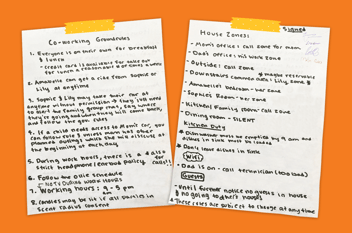 Co-working Groundrules
1. Everyone is on their own for breakfast
& lunch
- credit card is available for take out
for lunch a reasonable # of times a week
2. Annabelle can get a ride from Sophie or
Lily at anytime
3. Sophie & Lily may take their car at
anytime without permission & they still need
to start the family group chat, say where
they're going and when they will come back,
and follow the gas rules
4. If a child needs access to Mom's car, you
can follow rule 3 unless mom has other
planned events which she will discuss at
the beginning of each day
5. During work hours, there is a
strict headphone/earbud policy for calls!!
6. Follow the dule schedule
- NOT DURING work HOURS
7. Working hours: 9 - 5 pm
am
8. Candles may be lit if all parties in
scent radius consent
House Zones:
- Mom's office: call zone for mom
- Dad's office: his work zone
- Outside: call zone
- Downstairs common area: Lily's zone
maybe reservable
- Annabelle's Bedroom - her zone
- Sophie's Room - her zone
- Kitchen/Family room: call zone
- Dining room - SILENT
Kitchen Duty
Dishwasher must be emptied by 9 am and
dishes in sink must be loaded
* Don't leave dishes in sink
WiFi
- Dad is on - call technician (too loud)
Guests
- Until further notice no guests in house
& no going to others houses
* These rules are subject to change at any time